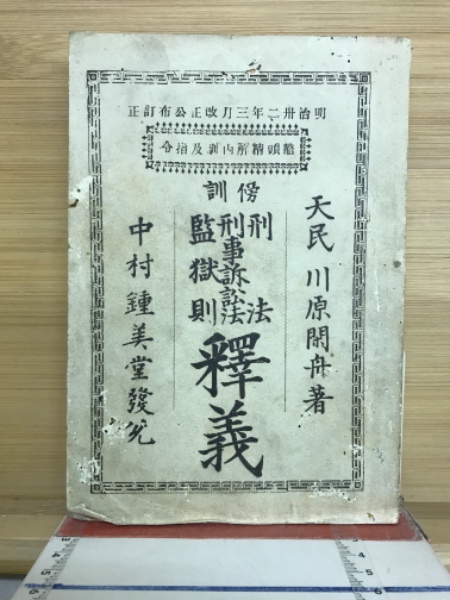 明治卅二年三月改正公布訂正
鼇頭精解内訓及指令
天民 川原閑舟著
傍訓
刑法
刑事訴訟法
監獄則
釋義
中村鍾美堂發兌